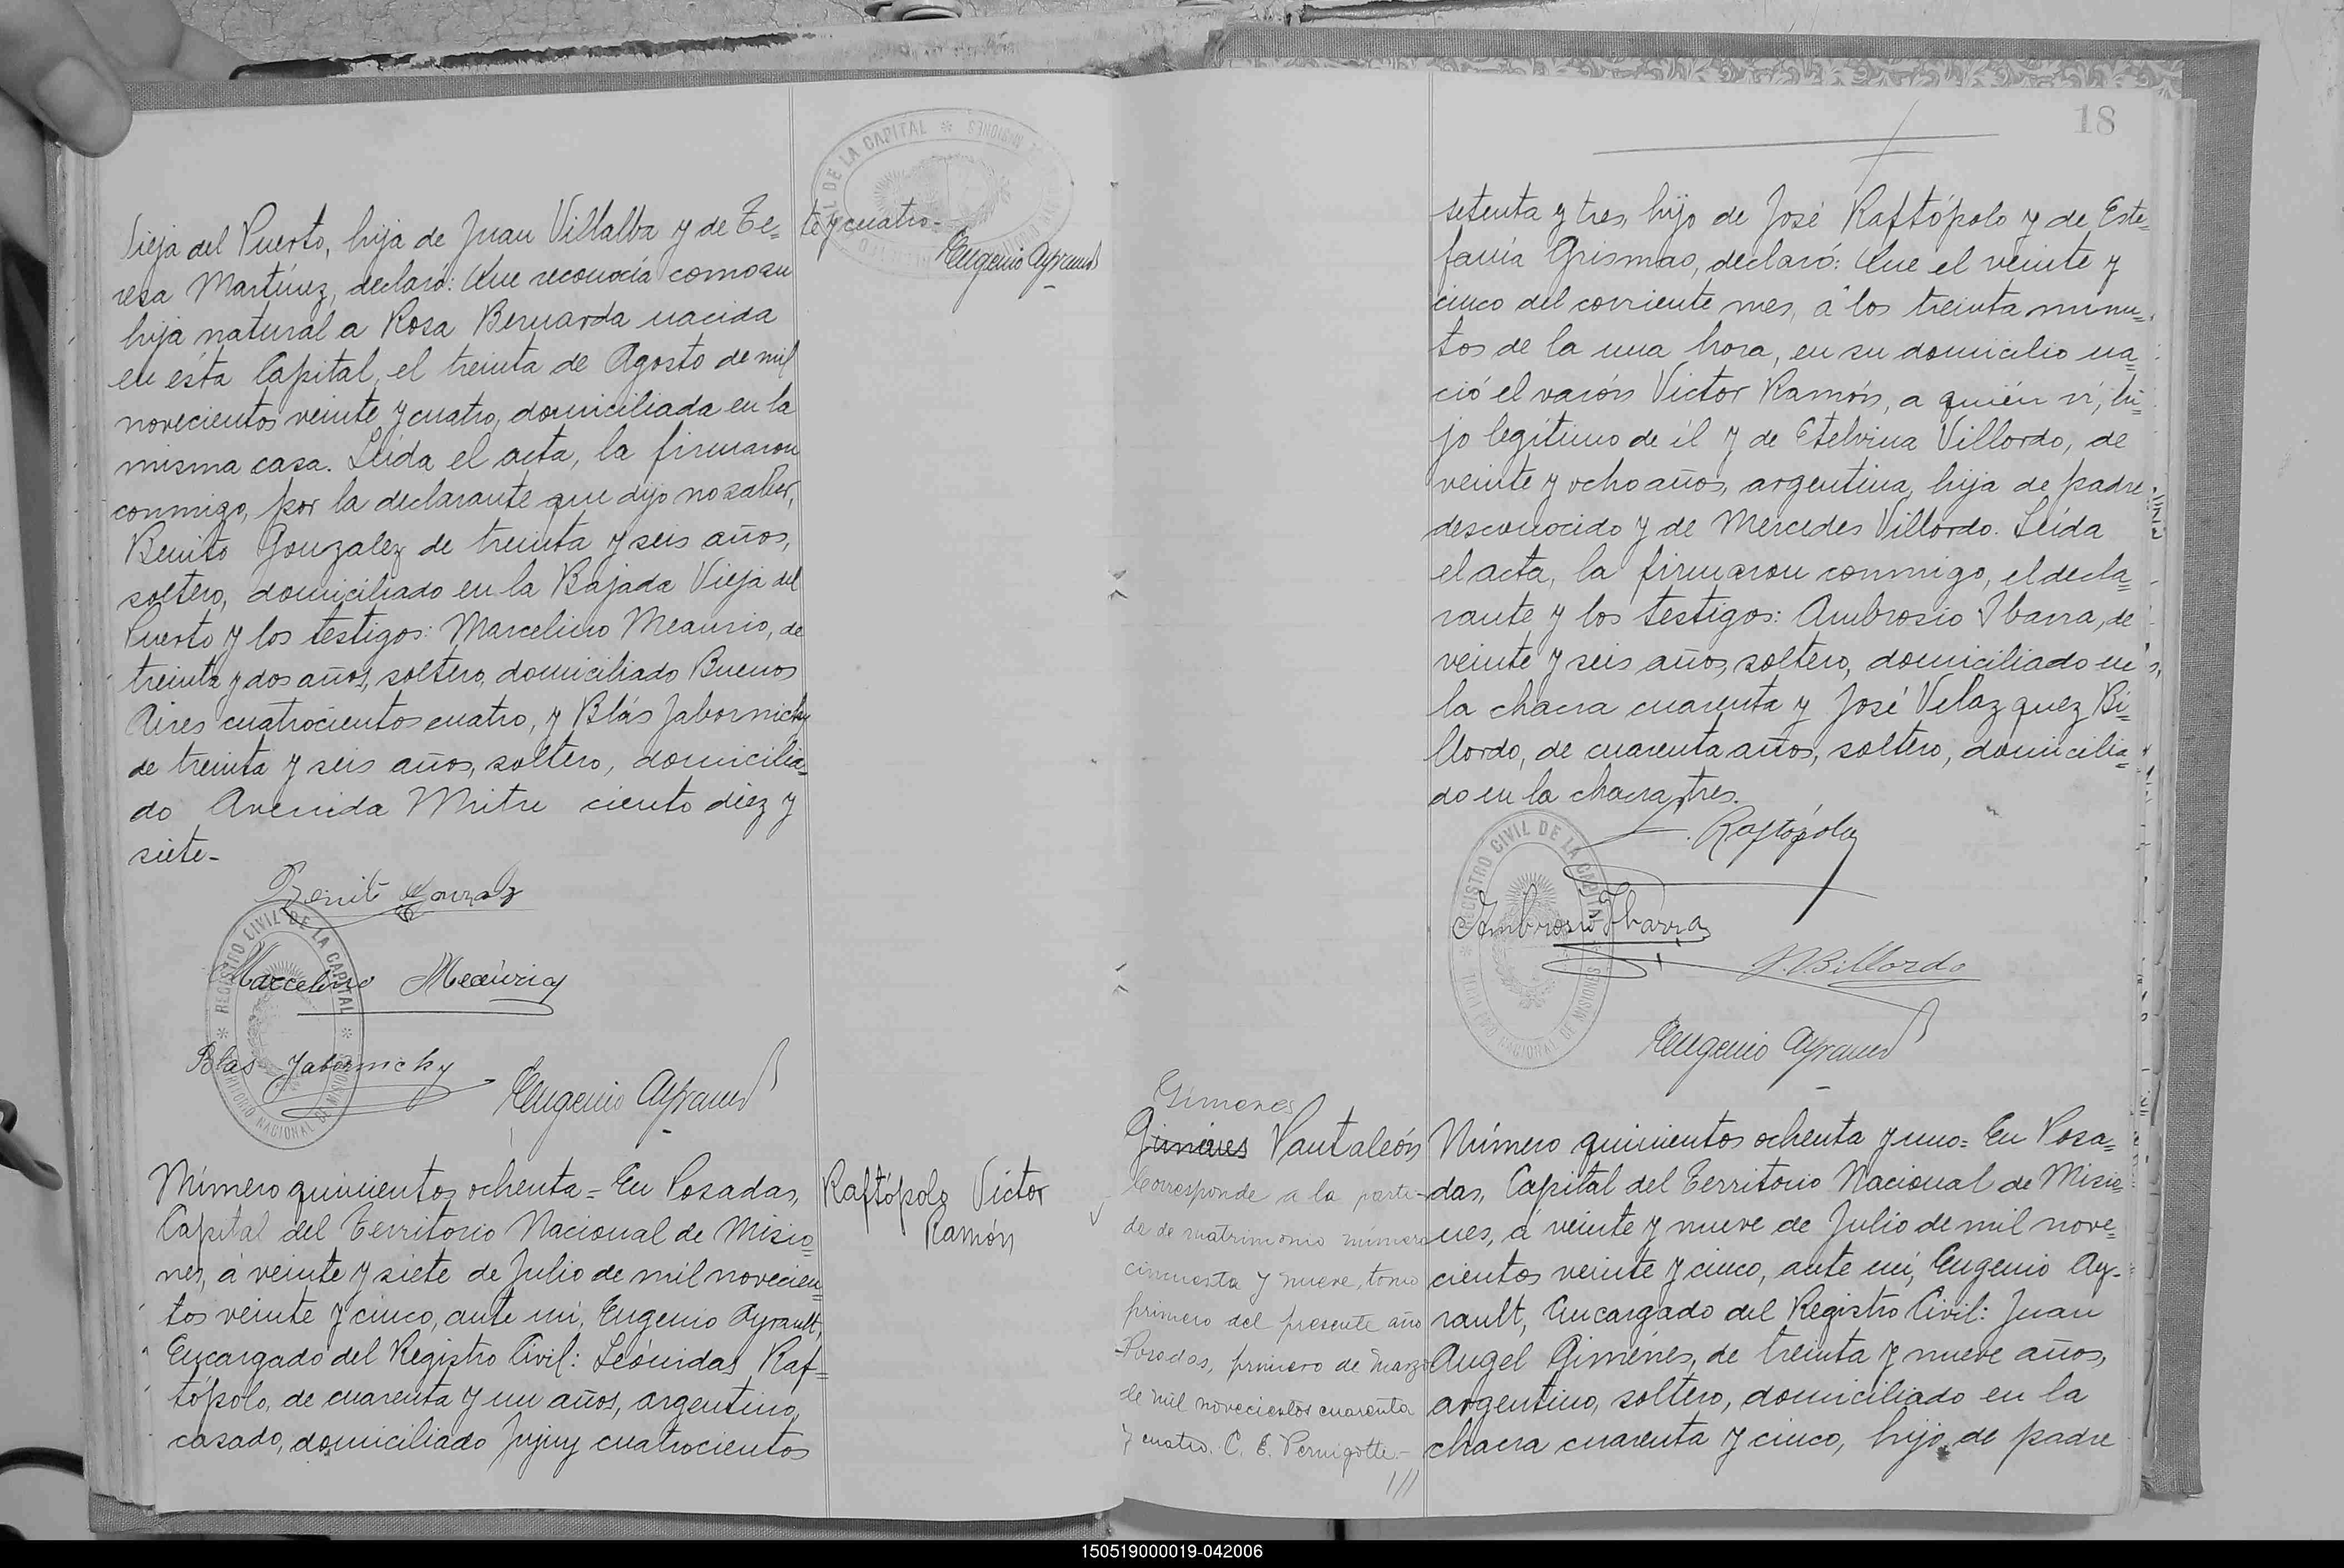 Vieja del Puerto, hija de Juan Villalba y de Te=
resa Martínez, declaró: Que reconocía como su
hija natural a Rosa Bernarda nacida
en ésta Capital, el treinta de Agosto de mil
novecientos veinte y cuatro, domiciliada en la
misma casa. Leída el acta, la firmaron
conmigo, por la declarante que dijo no saber,
Benito Gonzalez de treinta y seis años,
soltero, domiciliado en la Bajada Vieja del
Puerto y los testigos: Marcelino Meaurio, de
treinta y dos años, soltero, domiciliado Buenos
Aires cuatrocientos cuatro, y Blás Jabornicky
de treinta y seis años, soltero, domicilia=
do Avenida Mitre ciento diez y
siete-
Benito Gonzalez
Marcelino Meaurio
Blas Jabornicky
Eugenio Ayrault
REGISTRO CIVIL DE LA CAPITAL * TERRITORIO NACIONAL DE MISIONES *
te y cuatro-
Eugenio Ayrault
DE LA CAPITAL * MISIONES
Número quinientos ochenta= En Posadas,
Capital del Territorio Nacional de Misio=
nes, á veinte y siete de Julio de mil novecien=
tos veinte y cinco, ante mí, Eugenio Ayrault,
Encargado del Registro Civil: Leónidas Raf=
tópolo, de cuarenta y un años, argentino,
casado, domiciliado Jujuy cuatrocientos
Raftópolo Victor
Ramón
18
setenta y tres, hijo de José Raftópolo y de Este=
fanía Grismao, declaró: Que el veinte y
cinco del corriente mes, á los treinta minu=
tos de la una hora, en su domicilio na=
ció el varón Victor Ramón, a quién ví, hi=
jo legítimo de él y de Etelvina Villordo, de
veinte y ocho años, argentina, hija de padre
desconocido y de Mercedes Villordo. Leída
el acta, la firmaron conmigo, el decla=
rante y los testigos: Ambrosio Ibarra, de
veinte y seis años, soltero, domiciliado en
la chacra cuarenta y José Velazquez Bi=
llordo, de cuarenta años, soltero, domicilia=
do en la chacra tres.
L. Raftópolo
Ambrosio Ibarra
J. V. Billordo
Eugenio Ayrault
REGISTRO CIVIL DE LA CAPITAL * TERRITORIO NACIONAL DE MISIONES
Gimenez
Giménes Pantaleón
Corresponde a la parti-
da de matrimonio número
cincuenta y nueve, tomo
primero del presente año
Posadas, primero de Marzo
de mil novecientos cuarenta
y cuatro. C. E. Pernigotte.-
Número quinientos ochenta y uno= En Posa=
das, Capital del Territorio Nacional de Misio=
nes, á veinte y nueve de Julio de mil nove=
cientos veinte y cinco, ante mí, Eugenio Ay-
rault, Encargado del Registro Civil: Juan
Angel Giménes, de treinta y nueve años,
argentino, soltero, domiciliado en la
chacra cuarenta y cinco, hijo de padre
150519000019-042006